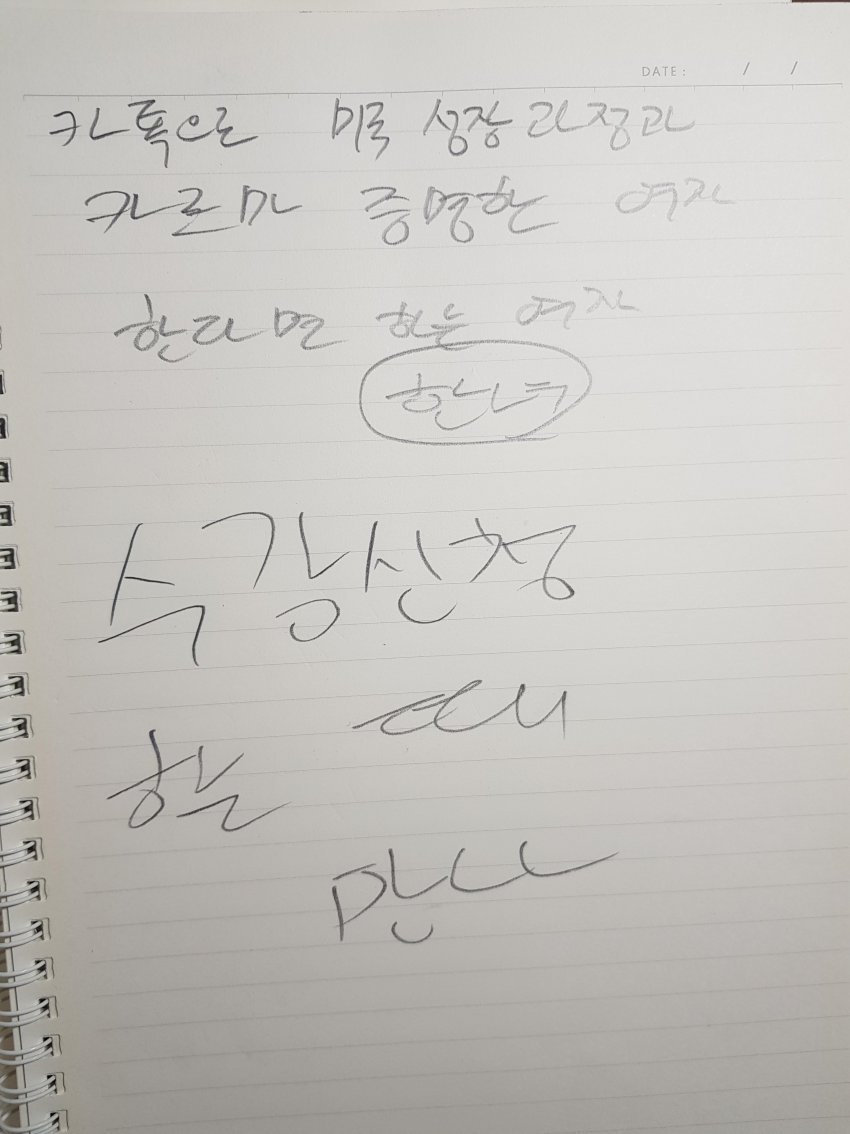 DATE : / /
카톡으로 미국 성장과정과
카르마 증명한 여자
한다면 하는 여자
한녀
수강신청
할 때
만나